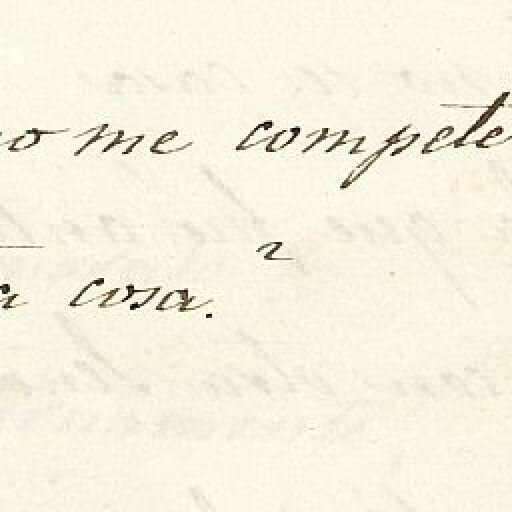 o me compete
a cosa.²